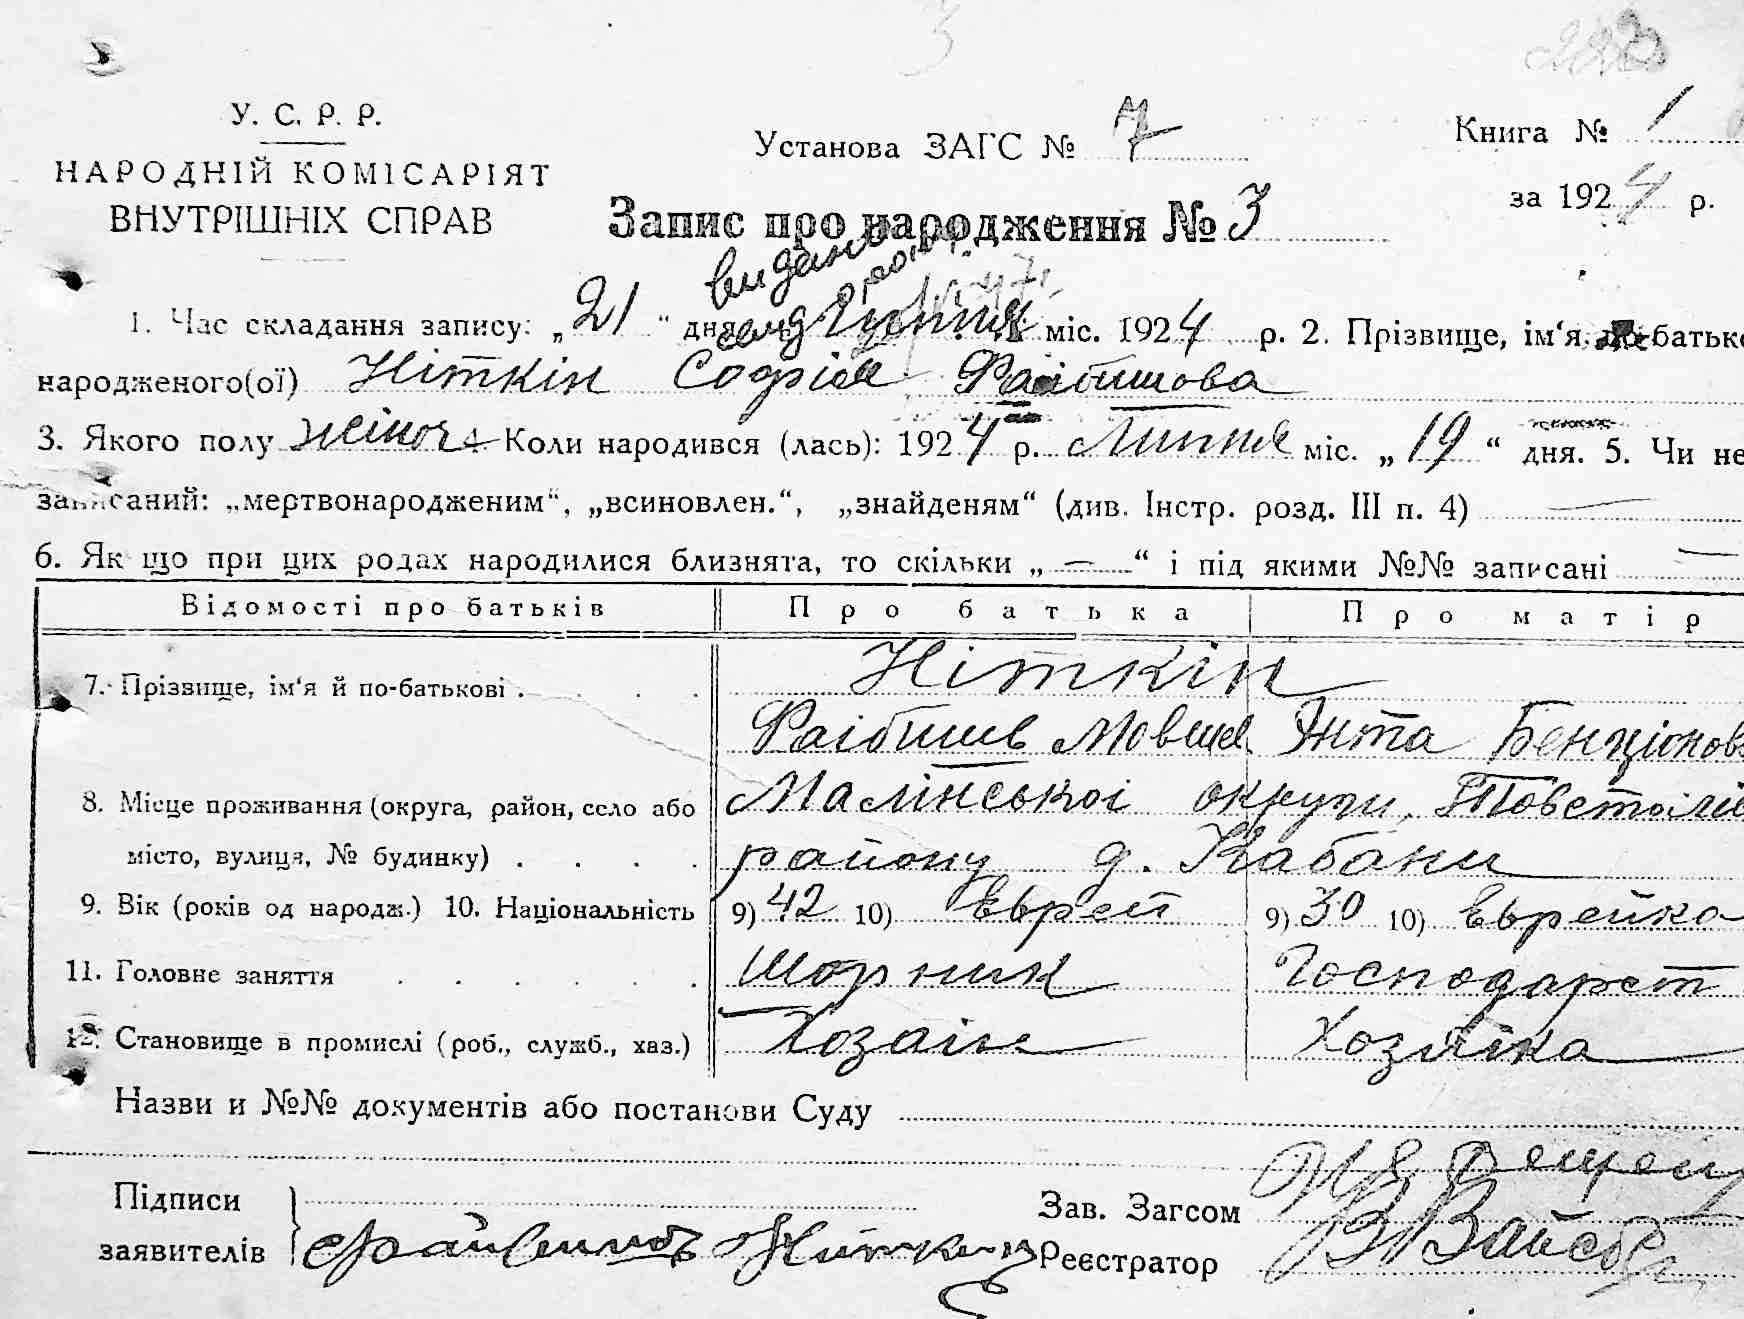 У. С. Р. Р.
НАРОДНІЙ КОМІСАРІЯТ
ВНУТРІШНІХ СПРАВ
Установа ЗАГС № 7
Книга № 1
за 1924 р.
Запис про народження № 3
видано
1. Час складання запису: „21“ дня Липня міс. 1924 р. 2. Прізвище, ім‘я, по-батьк
народженого(ої) Ніткін Софія Файбишова
3. Якого полу жіноч. Коли народився (лась): 1924 р. Липня міс. „19“ дня. 5. Чи не
записаний: „мертвонародженим“, „всиновлен.“, „знайденям“ (див. Інстр. розд. III п. 4) —
6. Як що при цих родах народилися близнята, то скільки „—“ і під якими №№ записані —
Відомості про батьків Про батька Про матір
Ніткін
7. Прізвище, ім‘я й по-батькові
Файбиш Мовшев Энта Бенціонов
8. Місце проживання (округа, район, село або Малінської округи,
місто, вулиця, № будинку) району д. Кабани
9. Вік (років од народж.) 10. Національність 9) 42 10) Єврей 9) 30 10) Єврейка
11. Головне заняття Шорник Господарст
12. Становище в промислі (роб., служб., хаз.) Хозаін Хозяйка
Назви и №№ документів або постанови Суду
Підписи
заявителів
Зав. Загсом
Реєстратор